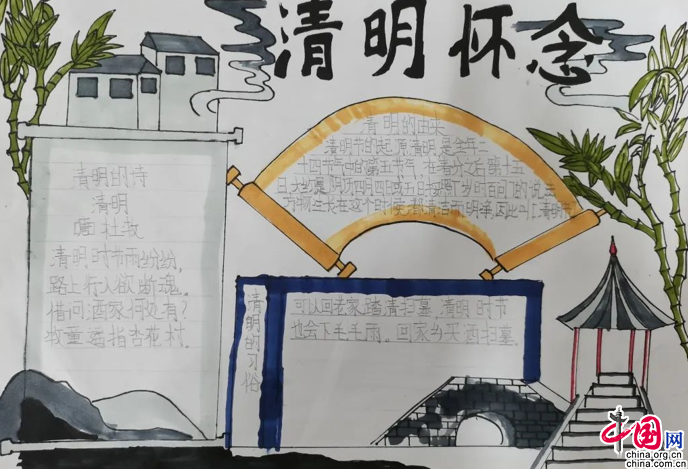 清明怀念
清明的诗
清明
唐 杜牧
清明时节雨纷纷，
路上行人欲断魂。
借问酒家何处有？
牧童遥指杏花村。
清明的由来
清明节的起原清明是全年二
十四节气中的第五节气，在春分之后第十五
日，大约是阳历四月四或五日
万物生长在这个时候，因此叫「清明节」
清明的习俗
可以回老家踏清扫墓，清明时节
也会下毛毛雨。回家乡买酒扫墓。
中国网
china.org.cn
china.com.cn